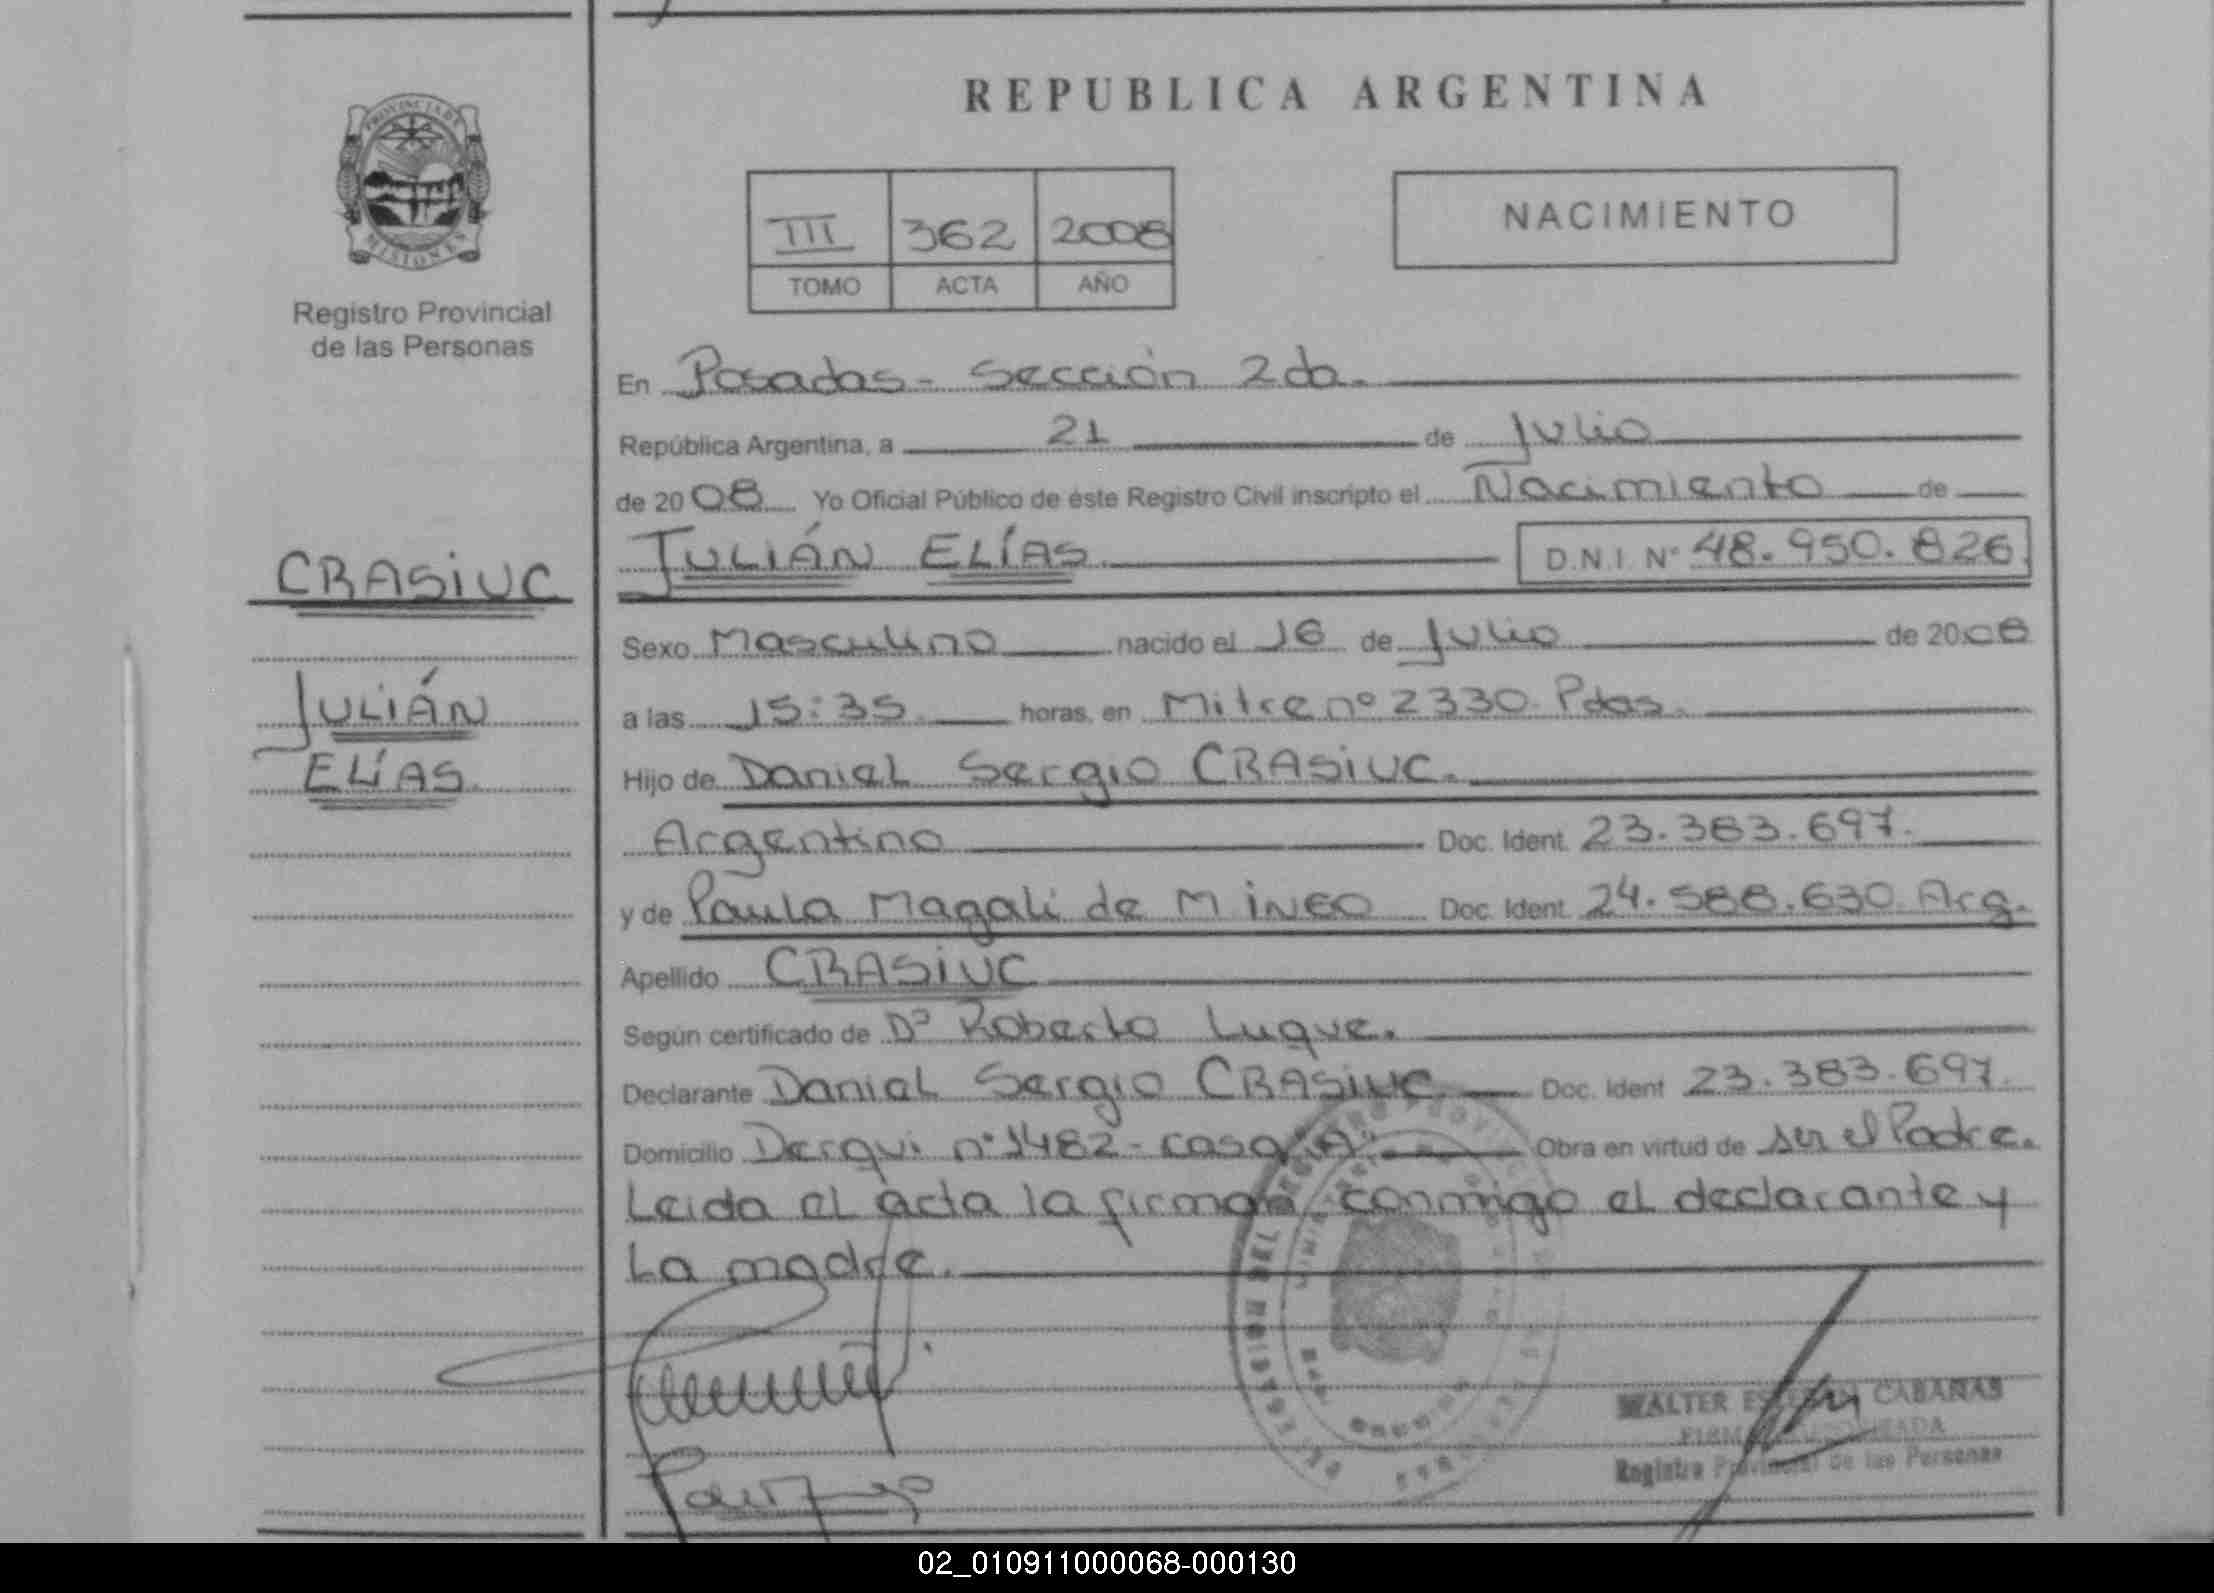 REPUBLICA ARGENTINA
PROVINCIA DE
MISIONES
Registro Provincial
de las Personas
III 362 2008
TOMO ACTA AÑO
NACIMIENTO
En Posadas - Sección 2da.
República Argentina, a 21 de Julio
de 2008 Yo Oficial Público de éste Registro Civil inscripto el Nacimiento de
CRASIUC
JULIÁN ELÍAS. D.N.I. Nº 48.950.826.
Sexo Masculino nacido el 16 de Julio de 2008
JULIÁN
a las 15:35 horas, en Mitre nº 2330. Pdas.
ELÍAS.
Hijo de Daniel Sergio CRASIUC.
Argentino Doc. Ident. 23.383.697.
y de Paula Magalí de MINEO Doc. Ident. 24.588.630 Arg.
Apellido CRASIUC
Según certificado de Dº Roberto Luque.
Declarante Daniel Sergio CRASIUC Doc. Ident 23.383.697.
Domicilio Derqui nº 1482 - casa Obra en virtud de ser el Padre.
Leida el acta la firman conmigo el declarante y
La madre.
WALTER CABAÑAS
Registro Provincial de las Personas
02_010911000068-000130